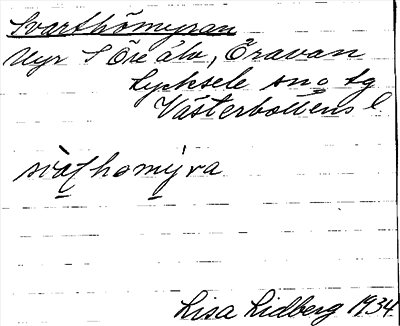 Svarthömyran
Myr S Öre älv, Öravan
Lycksele sn o tg
Västerbottens l
Lisa Lidberg 1934